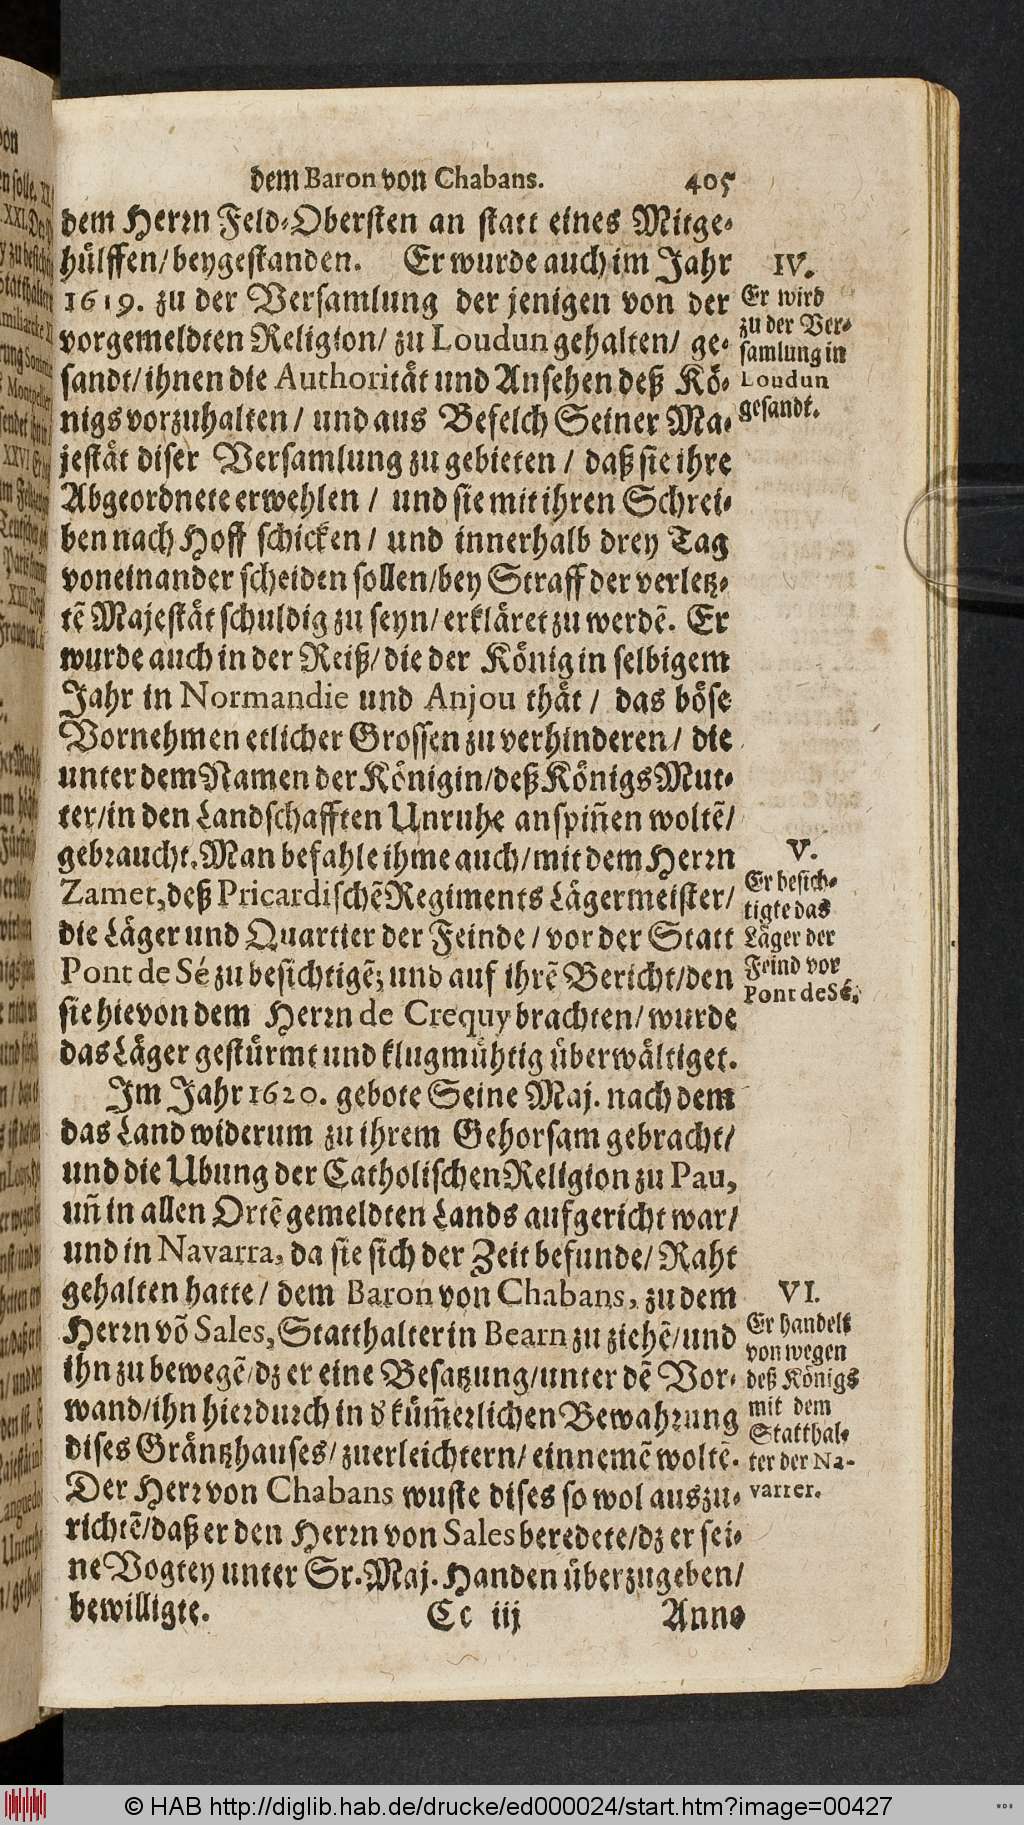 dem Baron von Chabans. 405
dem Herrn Feld-Obersten an statt eines Mitge-
hülffen/ beygestanden. Er wurde auch im Jahr
1619. zu der Versamlung der jenigen von der
vorgemeldten Religion/ zu Loudun gehalten/ ge-
sandt/ ihnen die Authorität und Ansehen deß Kö-
nigs vorzuhalten/ und aus Befelch Seiner Ma-
jestät diser Versamlung zu gebieten/ daß sie ihre
Abgeordnete erwehlen/ und sie mit ihren Schrei-
ben nach Hoff schicken/ und innerhalb drey Tag
voneinander scheiden sollen/ bey Straff der verletz-
tē Majestät schuldig zu seyn/ erkläret zu werdē. Er
wurde auch in der Reiß/ die der König in selbigem
Jahr in Normandie und Anjou thät/ das böse
Vornehmen etlicher Grossen zu verhinderen/ die
unter dem Namen der Königin/ deß Königs Mut-
ter/ in den Landschafften Unruhe anspiñen woltē/
gebraucht. Man befahle ihme auch/ mit dem Herrn
Zamet, deß Pricardischē Regiments Lägermeister/
die Läger und Quartier der Feinde/ vor der Statt
Pont de Sé zu besichtigē; und auf ihrē Bericht/ den
sie hievon dem Herrn de Crequy brachten/ wurde
das Läger gestürmt und klugmühtig überwältiget.
Im Jahr 1620. gebote Seine Maj. nach dem
das Land widerum zu ihrem Gehorsam gebracht/
und die Ubung der Catholischen Religion zu Pau,
uñ in allen Ortē gemeldten Lands aufgericht war/
und in Navarra, da sie sich der Zeit befunde/ Raht
gehalten hatte/ dem Baron von Chabans, zu dem
Herrn võ Sales, Statthalter in Bearn zu ziehē/ und
ihn zu bewegē/ dz er eine Besatzung/ unter dē Vor-
wand/ ihn hierdurch in d' küm̃erlichen Bewahrung
dises Gräntzhauses/ zuerleichtern/ einnemē woltē.
Der Herr von Chabans wuste dises so wol auszu-
richtē/ daß er den Herrn von Sales beredete/ dz er sei-
ne Vogtey unter Sr. Maj. Handen überzugeben/
bewilligte.
Cc iij Anno
IV.
Er wird
zu der Ver-
samlung in
Loudun
gesandt.
V.
Er besich-
tigte das
Läger der
Feind vor
Pont de Sé.
VI.
Er handelt
von wegen
deß Königs
mit dem
Statthal-
ter der Na-
varrer.
© HAB http://diglib.hab.de/drucke/ed000024/start.htm?image=00427